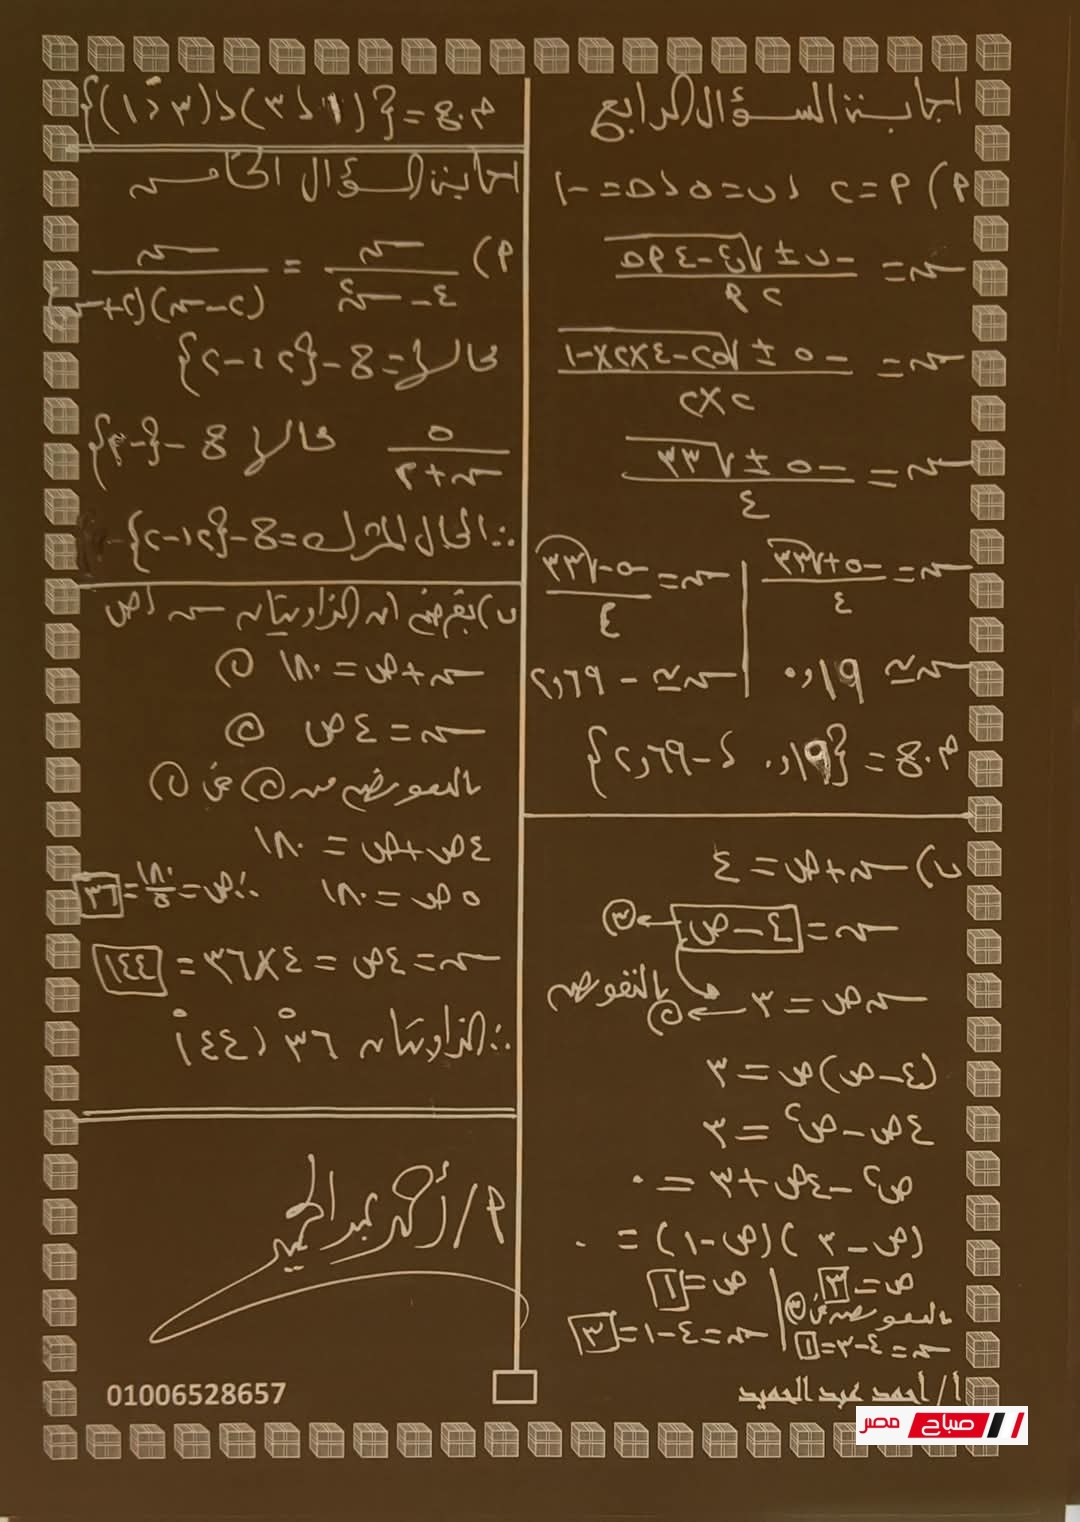 اجابة السؤال الرابع
م) م = ٢ ، ب = ٥ ، حـ = -١
س = (-ب ± √(ب٢ - ٤ م حـ)) / ٢ م
س = (-٥ ± √(٢٥ - ٤×٢×-١)) / ٢×٢
س = (-٥ ± √٣٣) / ٤
س = (-٥ + √٣٣) / ٤ | س = (-٥ - √٣٣) / ٤
س ≃ ٠,١٩ | س ≃ - ٢,٦٩
م.ح = {٠,١٩ ، -٢,٦٩}
ب) س + ص = ٤
س = ٤ - ص ← ③
س ص = ٣ ← ② بالتعويض
(٤ - ص) ص = ٣
٤ص - ص٢ = ٣
ص٢ - ٤ص + ٣ = ٠
(ص - ٣)(ص - ١) = ٠
ص = ٣ | ص = ١
بالتعويض فى ③
س = ٤ - ٣ = ١ | س = ٤ - ١ = ٣
م.ح = {(١ ، ٣) ، (٣ ، ١)}
اجابة السؤال الخامس
م) س / (س٢ - ٤) = س / (س - ٢)(س + ٢)
مجالها = ح - {٢ ، -٢}
٥ / (س + ٢) مجالها ح - {-٢}
∴ المجال المشترك = ح - {٢ ، -٢}
ب) بفرض ان الزاويتان س ، ص
س + ص = ١٨٠ ①
س = ٤ ص ②
بالتعويض من ② فى ①
٤ص + ص = ١٨٠
٥ ص = ١٨٠ ∴ ص = ١٨٠ / ٥ = ٣٦
س = ٤ص = ٤ × ٣٦ = ١٤٤
∴ الزاويتان ٣٦° ، ١٤٤°
م/ أحمد عبد الحميد
01006528657
أ/ أحمد عبد الحميد
صباح مصر